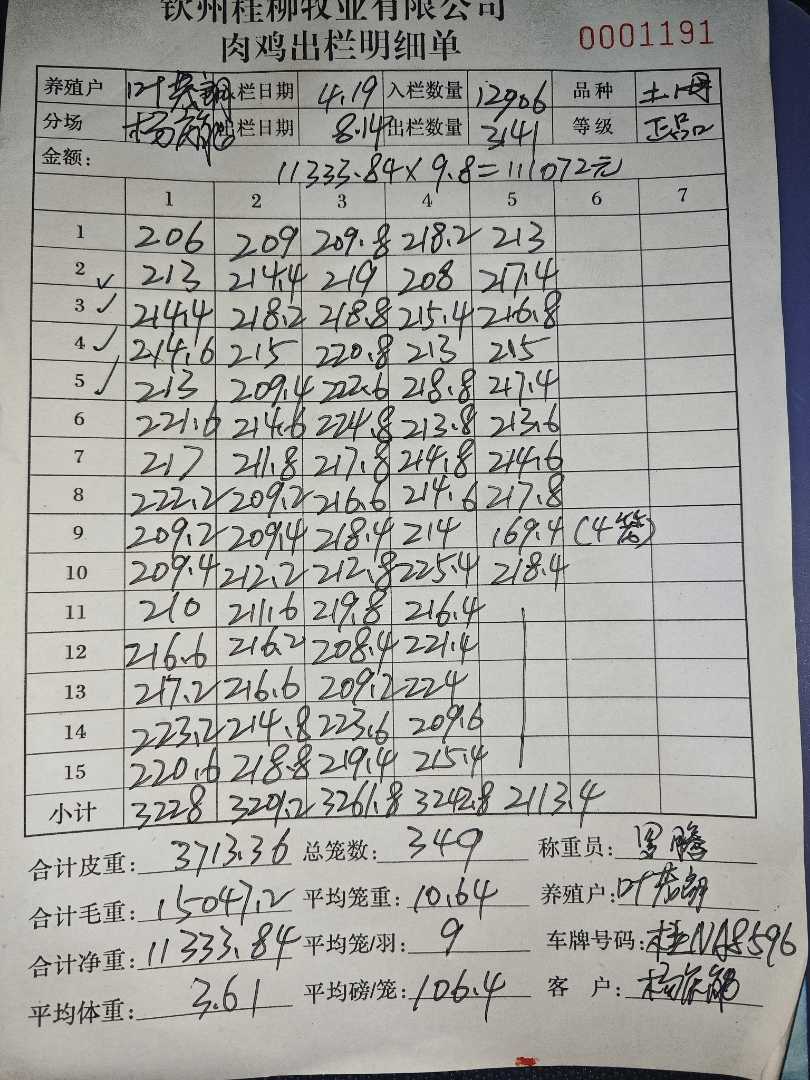 钦州桂柳牧业有限公司
肉鸡出栏明细单 0001191
养殖户 叶 入栏日期 4.19 入栏数量 12906 品种 土
分场 杨 出栏日期 8.14 出栏数量 3141 等级 正品
金额: 11333.84×9.8=111072元
1 2 3 4 5 6 7
1 206 209 209.8 218.2 213
2 213 214.4 219 208 217.4
3 214.4 218.2 218.8 215.4 216.8
4 214.6 215 220.8 213 215
5 213 209.4 222.6 218.8 217.4
6 221.6 214.6 224.8 213.8 213.6
7 217 211.8 217.8 214.8 214.6
8 222.2 209.2 216.6 214.6 217.8
9 209.2 209.4 218.4 214 169.4 (4笼)
10 209.4 212.2 212.8 225.4 218.4
11 210 211.6 219.8 216.4
12 216.6 216.2 208.4 221.4
13 217.2 216.6 209.2 224
14 223.2 214.8 223.6 209.6
15 220.6 218.8 219.4 215.4
小计 3228 3201.2 3261.8 3242.8 2113.4
合计皮重: 3713.36 总笼数: 349 称重员: 罗腾
合计毛重: 15047.2 平均笼重: 10.64 养殖户: 叶
合计净重: 11333.84 平均笼/羽: 9 车牌号码: 桂NA8596
平均体重: 3.61 平均磅/笼: 106.4 客户: 杨